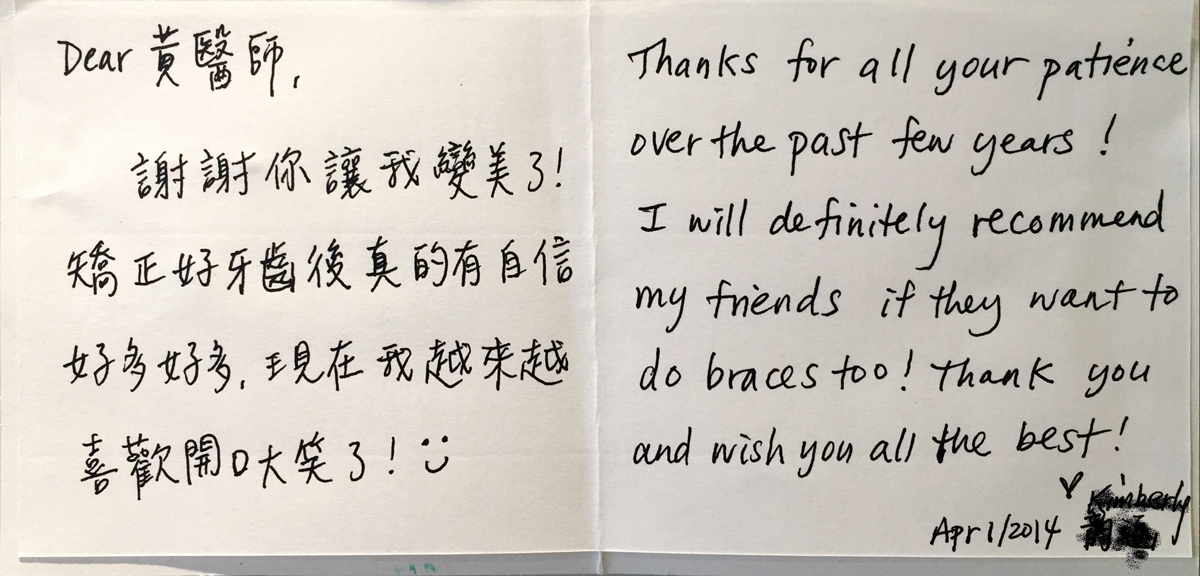 Dear 黃醫師,
謝謝你讓我變美了!
矯正好牙齒後真的有自信
好多好多,現在我越來越
喜歡開口大笑了! :)
Thanks for all your patience
over the past few years!
I will definitely recommend
my friends if they want to
do braces too! Thank you
and wish you all the best!
♥ Kimberly
Apr 1/2014